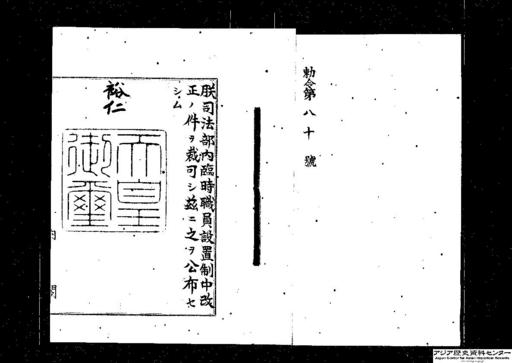 勅令第八十號
朕司法部内臨時職員設置制中改
正ノ件ヲ裁可シ茲ニ之ヲ公布セ
シム
裕仁
天皇
御璽
内閣
アジア歴史資料センター
Japan Center for Asian Historical Records